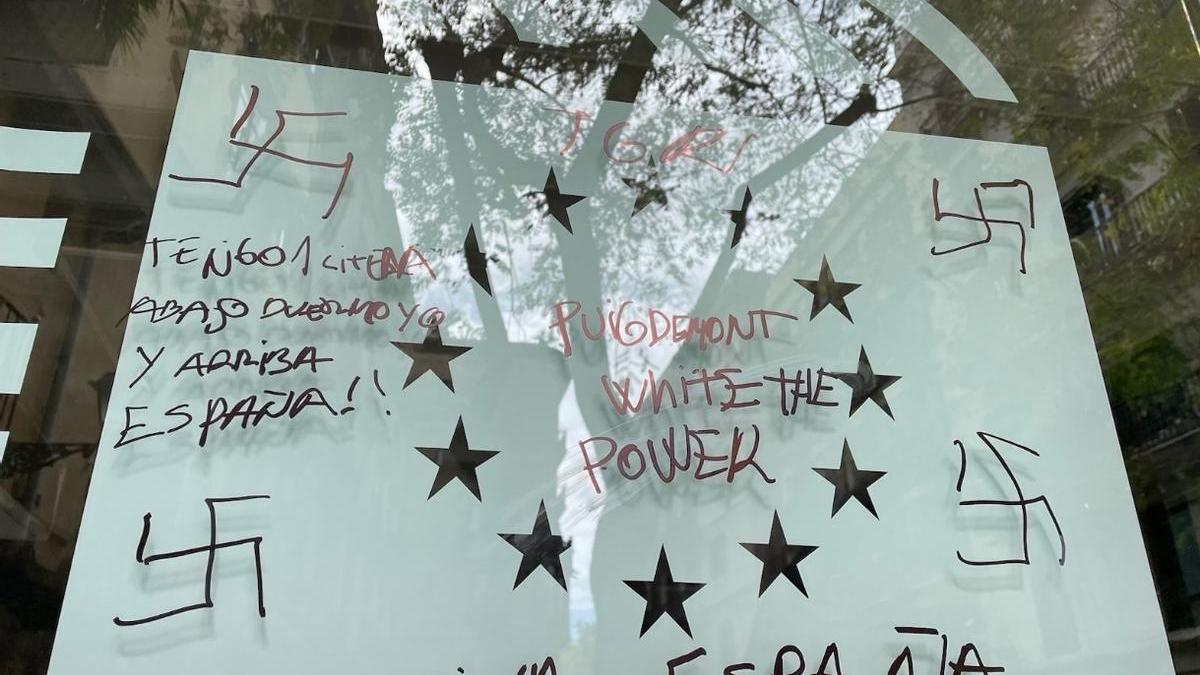 TENGO 1 LITERA
ABAJO DUERMO YO
Y ARRIBA
ESPAÑA!!
PUIGDEMONT
WHITE THE
POWER
ESPAÑA